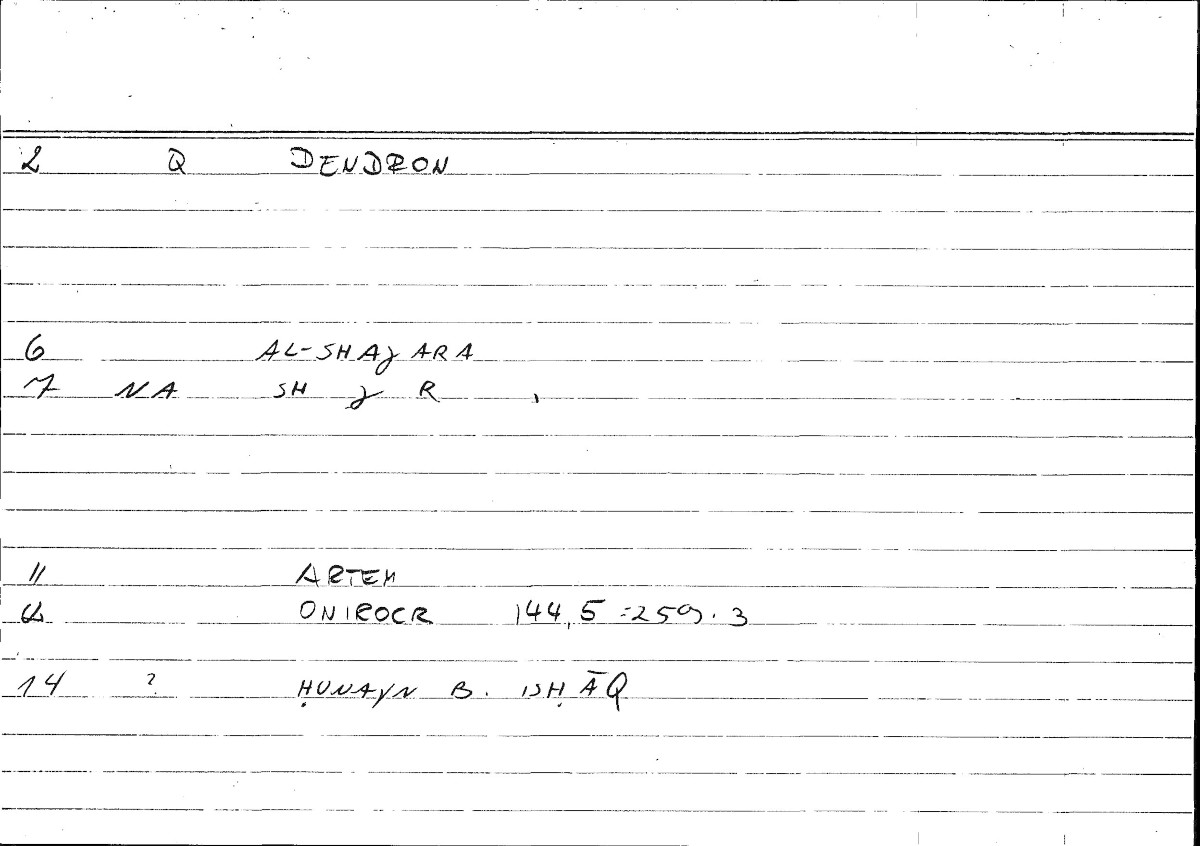 2 Q DENDRON
6 AL-SHAJARA
7 NA SH J R
11 ARTEM
12 ONIROCR 144,5 = 259.3
14 ? ḤUNAYN B. ISḤĀQ